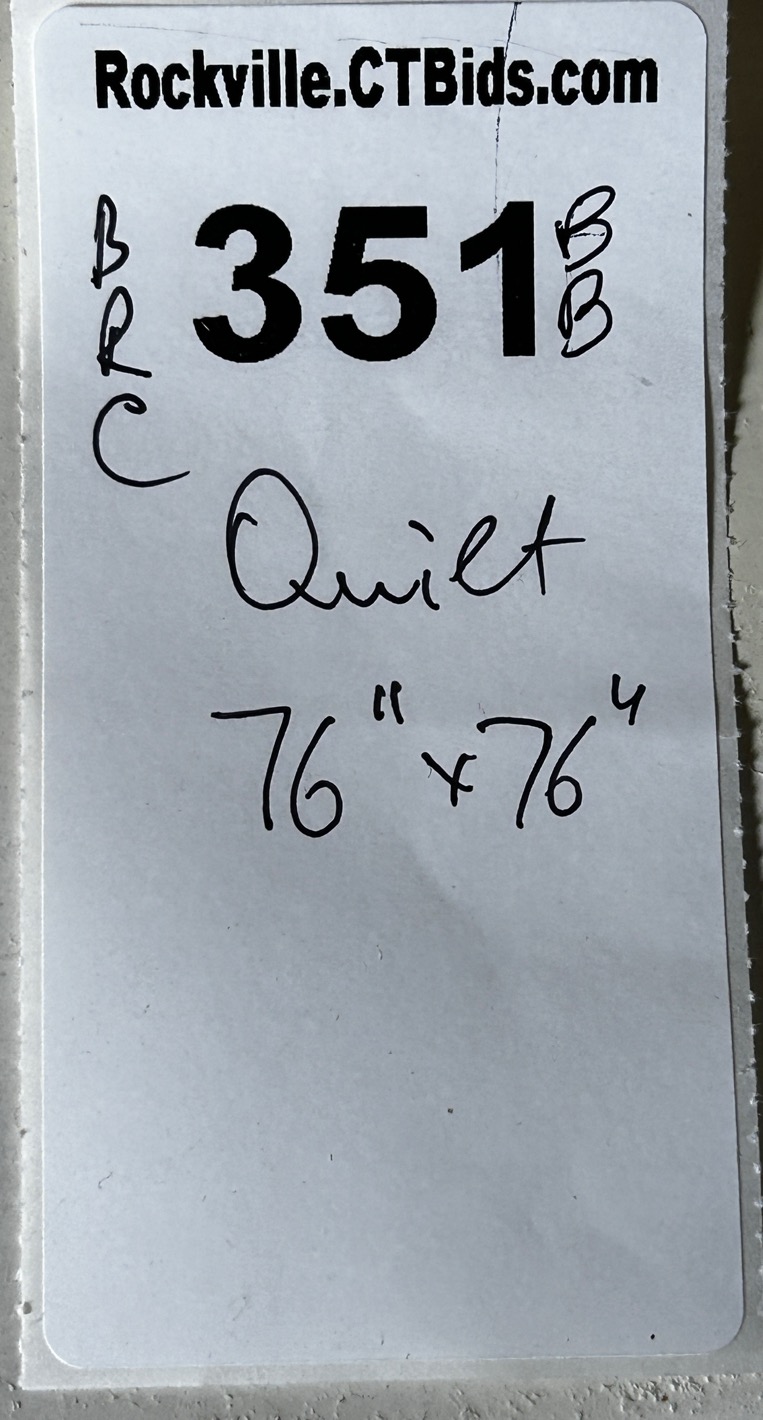 Rockville.CTBids.com
B 351 B
R B
C
Quilt
76" x 76"